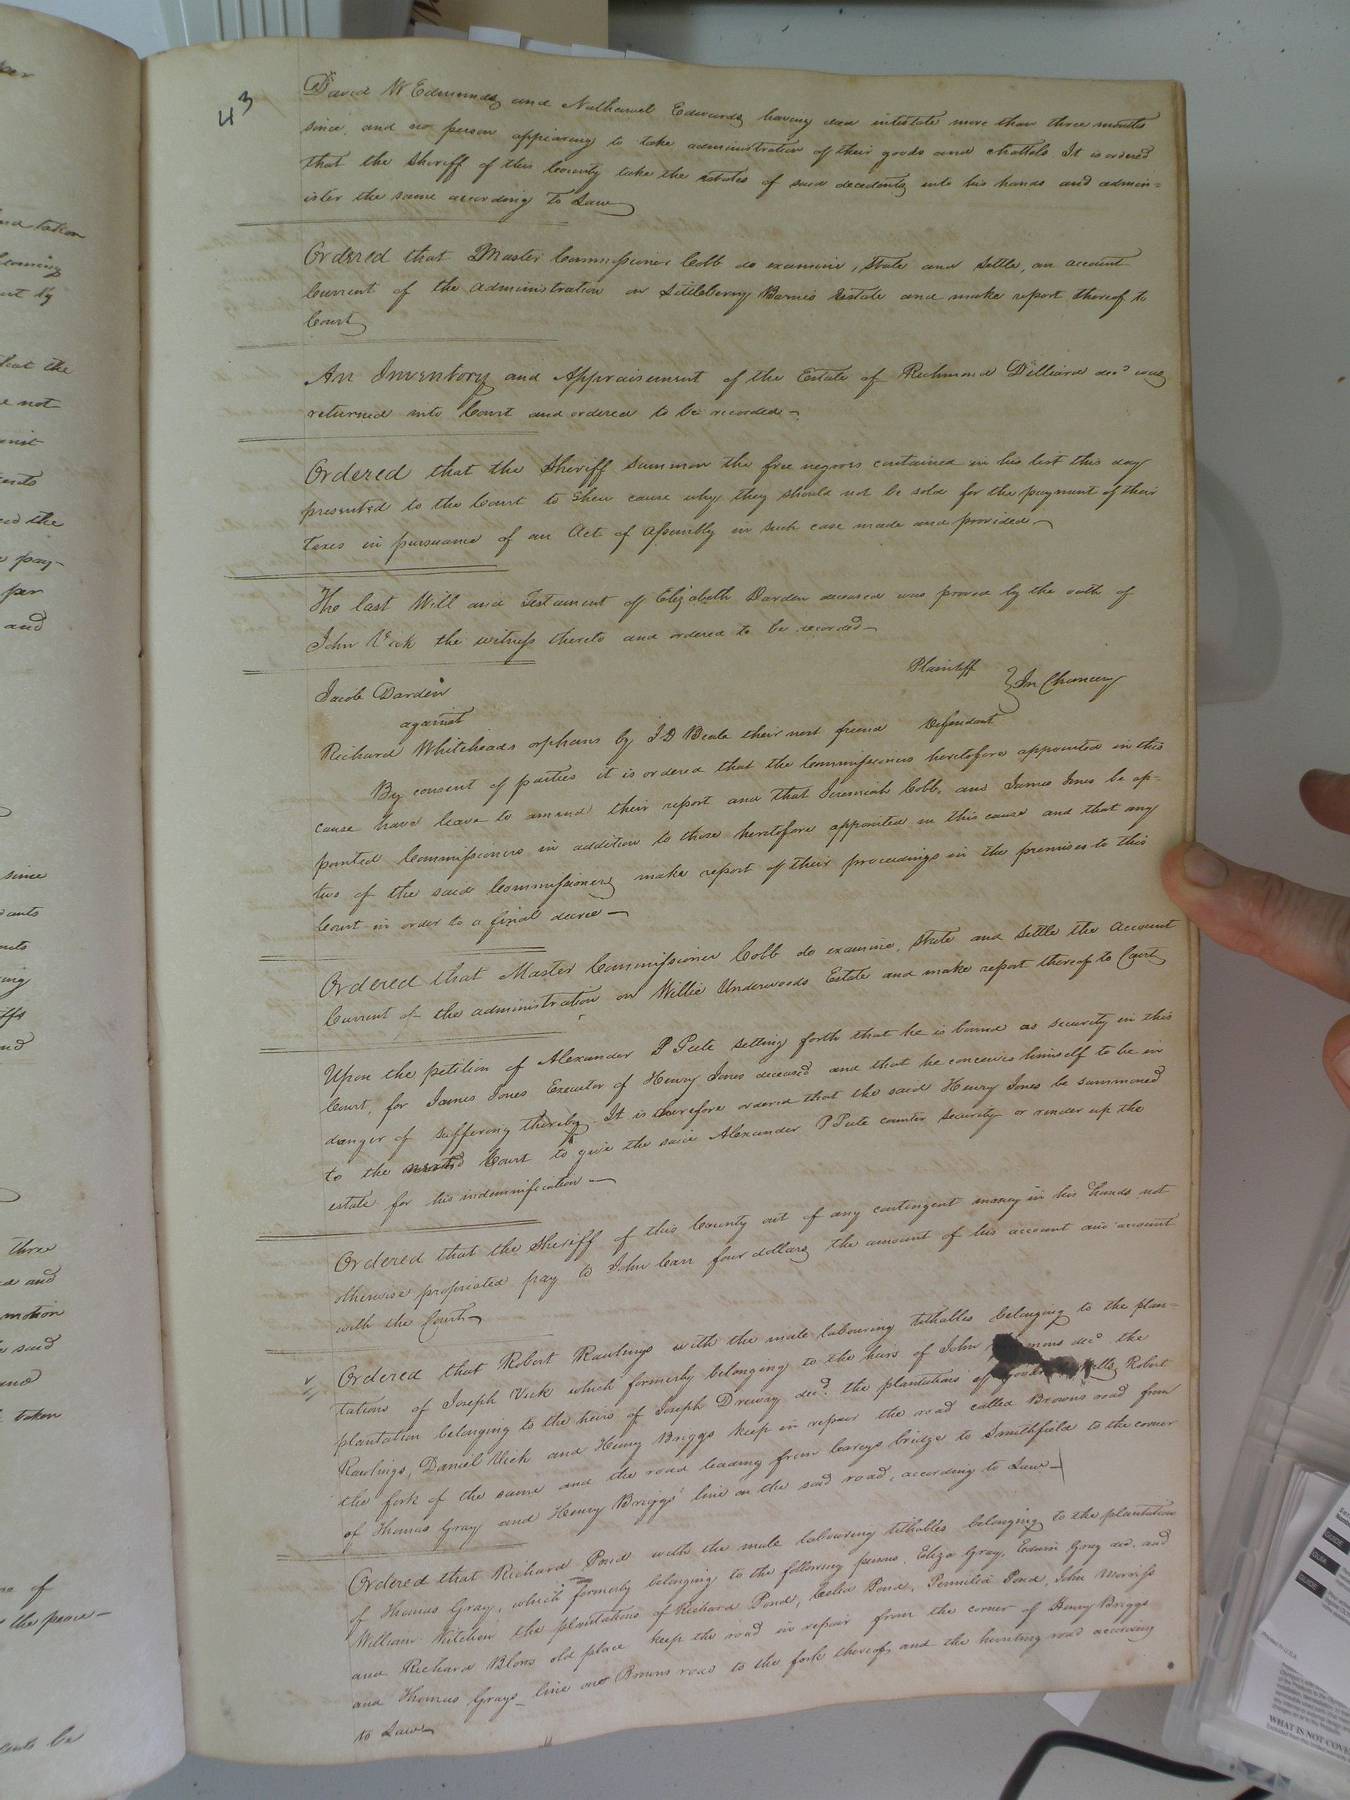 43
David W Edmunds and Nathaniel Edwards having died intestate more than three months
since, and no person appearing to take administration of their goods and chattels It is ordered
that the Sheriff of this County take the estates of said decedents into his hands and admin=
ister the same according to Law
Ordered that Master Commissioner Cobb do examine, State and Settle, an account
Current of the administration on Littleberry Barnes Estate and make report thereof to
Court
An Inventory and Appraisement of the Estate of Richmond Dilliard decd was
returned into Court and ordered to be recorded—
Ordered that the Sheriff Summon the free negroes contained in his list this day
presented to the Court to Shew cause why they should not be sold for the payment of their
taxes in pursuance of an Act of Assembly in such case made and provided—
The last Will and Testament of Elizabeth Darden deceased was proved by the oath of
John Vick the witness thereto and ordered to be recorded—
Jacob Darden Plaintiff
against } In Chancery
Richard Whiteheads orphans by J D Beale their next friend Defendant
By consent of parties it is ordered that the Commissioners heretofore appointed in this
cause have leave to amend their report and that Jeremiah Cobb, and James Jones be ap-
pointed Commissioners in addition to those heretofore appointed in this cause and that any
two of the said Commissioners make report of their proceedings in the premises to this
Court in order to a final decree—
Ordered that Master Commissioner Cobb do examine, State and Settle the Account
Current of the administration on Willie Underwoods Estate and make report thereof to Court
Upon the petition of Alexander P Peete setting forth that he is bound as security in this
Court, for James Jones Executor of Henry Jones deceased and that he conceives himself to be in
danger of suffering thereby. It is therefore ordered that the said Henry Jones be summoned
to the Court to give the said Alexander P Peete counter security or render up the
estate for his indemnification—
Ordered that the Sheriff of this County out of any contingent money in his hands not
otherwise propriated pay to John Carr four dollars the amount of his account and account
with the Court
Ordered that Robert Rawlings with the male labouring tithables belonging to the plan-
tations of Joseph Vick which formerly belonging to the heirs of John decd the
plantation belonging to the heirs of Joseph Drewry decd. the plantations of Robert
Rawlings, Daniel Vick and Henry Briggs keep in repair the road called Browns road from
the fork of the same and the road leading from Careys bridge to Smithfield to the corner
of Thomas Gray and Henry Briggs' line on the said road, according to Law—
Ordered that Richard Pond with the male labouring tithables belonging to the plantation
of Thomas Gray, which formerly belonging to the following persons, Eliza Gray, Edwin Gray decd, and
William Kitchen the plantations of Richard Pond, Celia Pond, Permilia Pond, John Morriss
and Richard Blows old place keep the road in repair from the corner of Henry Briggs
and Thomas Grays line over Browns road to the fork thereof, and the hunting road according
to Law
WHAT IS NOT COVE